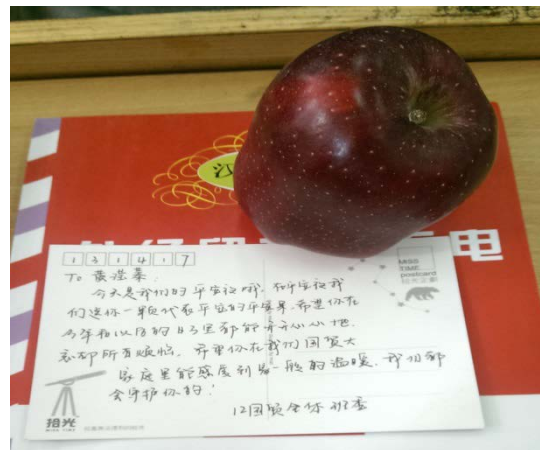 江
电
1 3 1 4 1 7
MISS
TIME
postcard
拾光立刻
To 黄滢蓁:
今天是我们的平安夜哦,在平安夜我
们送你一颗代表平安的平安果,希望你在
今年和以后的日子里都能开开心心地.
忘却所有烦恼,希望你在我们国贸大
家庭里能感受到另一般的温暖,我们都
会守护你的!
12国贸全体班委
拾光
MISS TIME